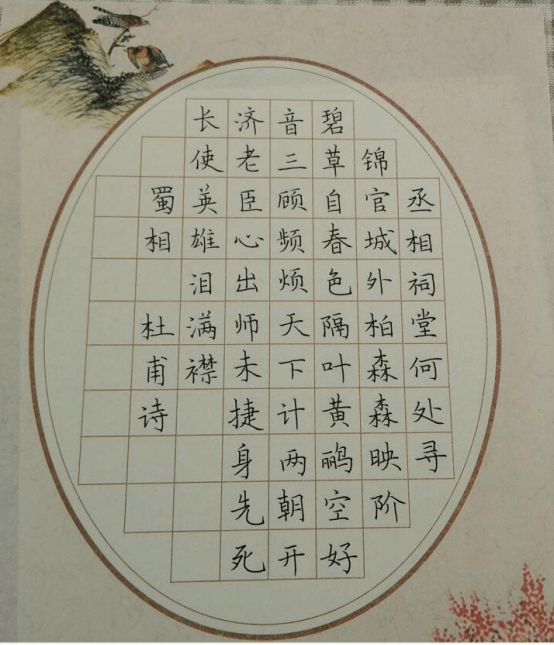 丞相祠堂何处寻
锦官城外柏森森映阶
碧草自春色隔叶黄鹂空好
音三顾频烦天下计两朝开
济老臣心出师未捷身先死
长使英雄泪满襟
蜀相 杜甫诗